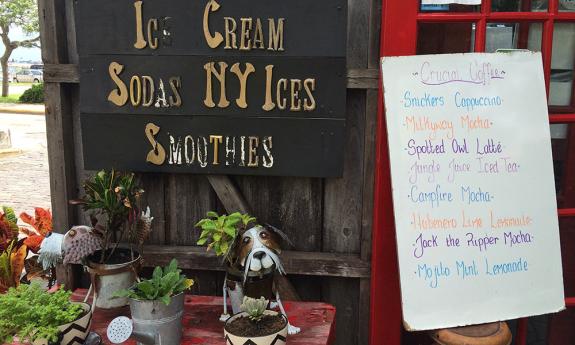 Ice Cream
Sodas NY Ices
Smoothies
Crucial Coffee
·Snickers Cappuccino·
·Milkyway Mocha·
·Spotted Owl Latté·
·Jungle Juice Iced Tea·
·Campfire Mocha·
·Habenero Lime Lemonade·
·Jack the Ripper Mocha·
·Mojito Mint Lemonade·